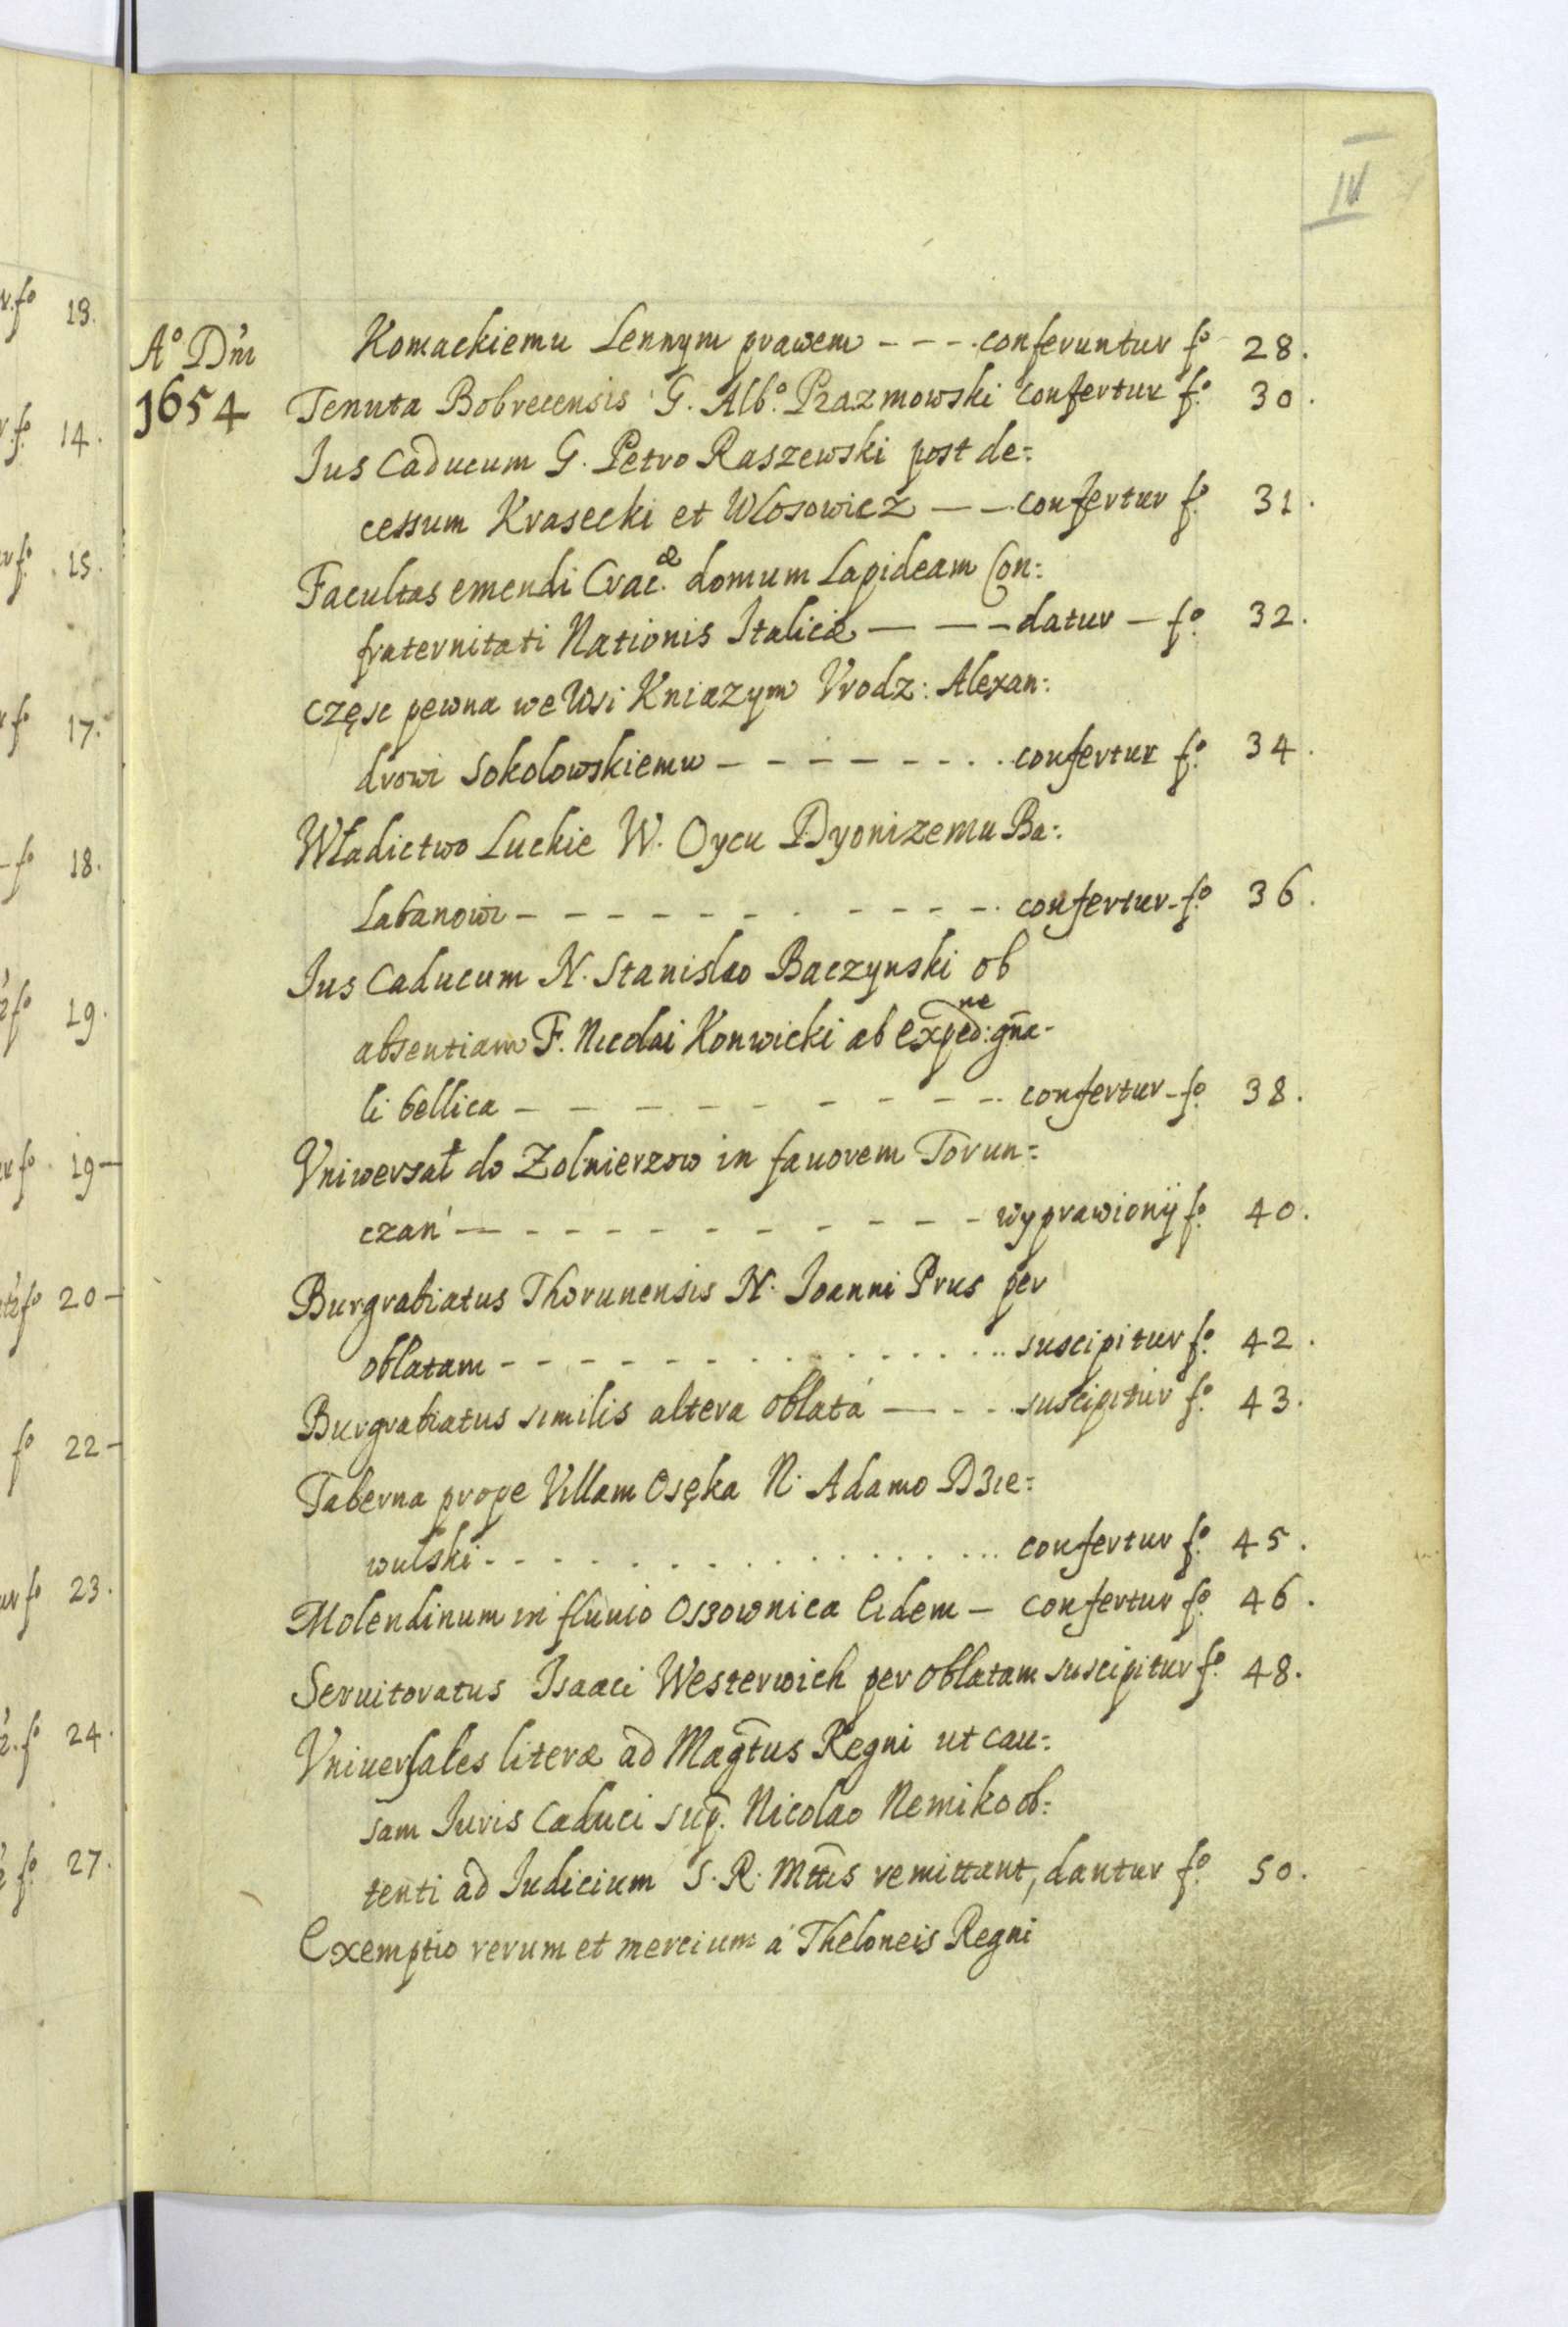 IV
Aº Dni
1654
Komackiemu Lennym prawem - - - - conferuntur fº 28.
Tenuta Bobrecensis G. Albº Prazmowski confertur fº 30.
Ius Caducum G. Petro Raszewski post de:
cessum Krasecki et Wlosowicz - - confertur fº 31.
Facultas emendi Crac.æ domum Lapideam Con:
fraternitati Nationis Italicæ - - - datur - fº 32.
częsc pewna we Wsi Kniazym Vrodz: Alexan:
drowi Sokolowskiemu - - - - - - - - confertur fº 34.
Władictwo Luckie W. Oycu Dyonizemu Ba:
Labanowi - - - - - - - - - - - - confertur - fº 36.
Ius Caducum N. Stanislao Baczynski ob
absentiam F. Nicolai Konwicki ab Exped:ne gńa-
li bellica - - - - - - - - - confertur - fº 38.
Vniwersał do Zolnierzow in fauorem Torun:
czań - - - - - - - - - - - wyprawionÿ fº 40.
Burgrabiatus Thorunensis N. Ioanni Prus per
oblatam - - - - - - - - - - - - suscipitur fº 42.
Burgrabiatus similis altera oblatá - - - suscipitur fº 43.
Taberna prope Villam Osęka N. Adamo D3ie:
wulski - - - - - - - - - - - - confertur fº 45.
Molendinum in fluuio Os3ownica Eidem - confertur fº 46.
Seruitoratus Isaaci Westerwich per oblatam suscipitur fº 48.
Vniuersales literæ ad Magtus Regni ut cau:
sam Iuris Caduci sup. Nicolao Nemiko ob:
tenti ad Iudicium S. R. Mttis remittant, dantur fº 50.
Exemptio rerum et mercium á Theloneis Regni
fº 13.
fº 14.
fº 15.
fº 17.
fº 18.
fº 19.
fº 19-
fº 20-
fº 22-
fº 23.
fº 24.
fº 27.